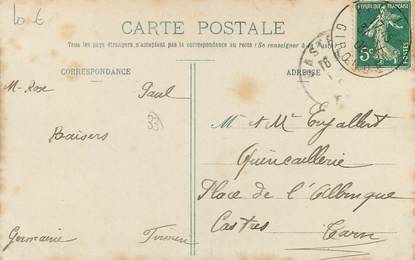 60-6
CARTE POSTALE
Tous les pays étrangers n'acceptent pas la correspondance au recto (Se renseigner à la Poste)
CORRESPONDANCE
ADRESSE
5c
GIRONDE
CAST
M-Rose
Paul
Baisers
33
Germaine
M. & Mme Enjalbert
Quincaillerie
Place de l'Albinque
Castres
Tarn